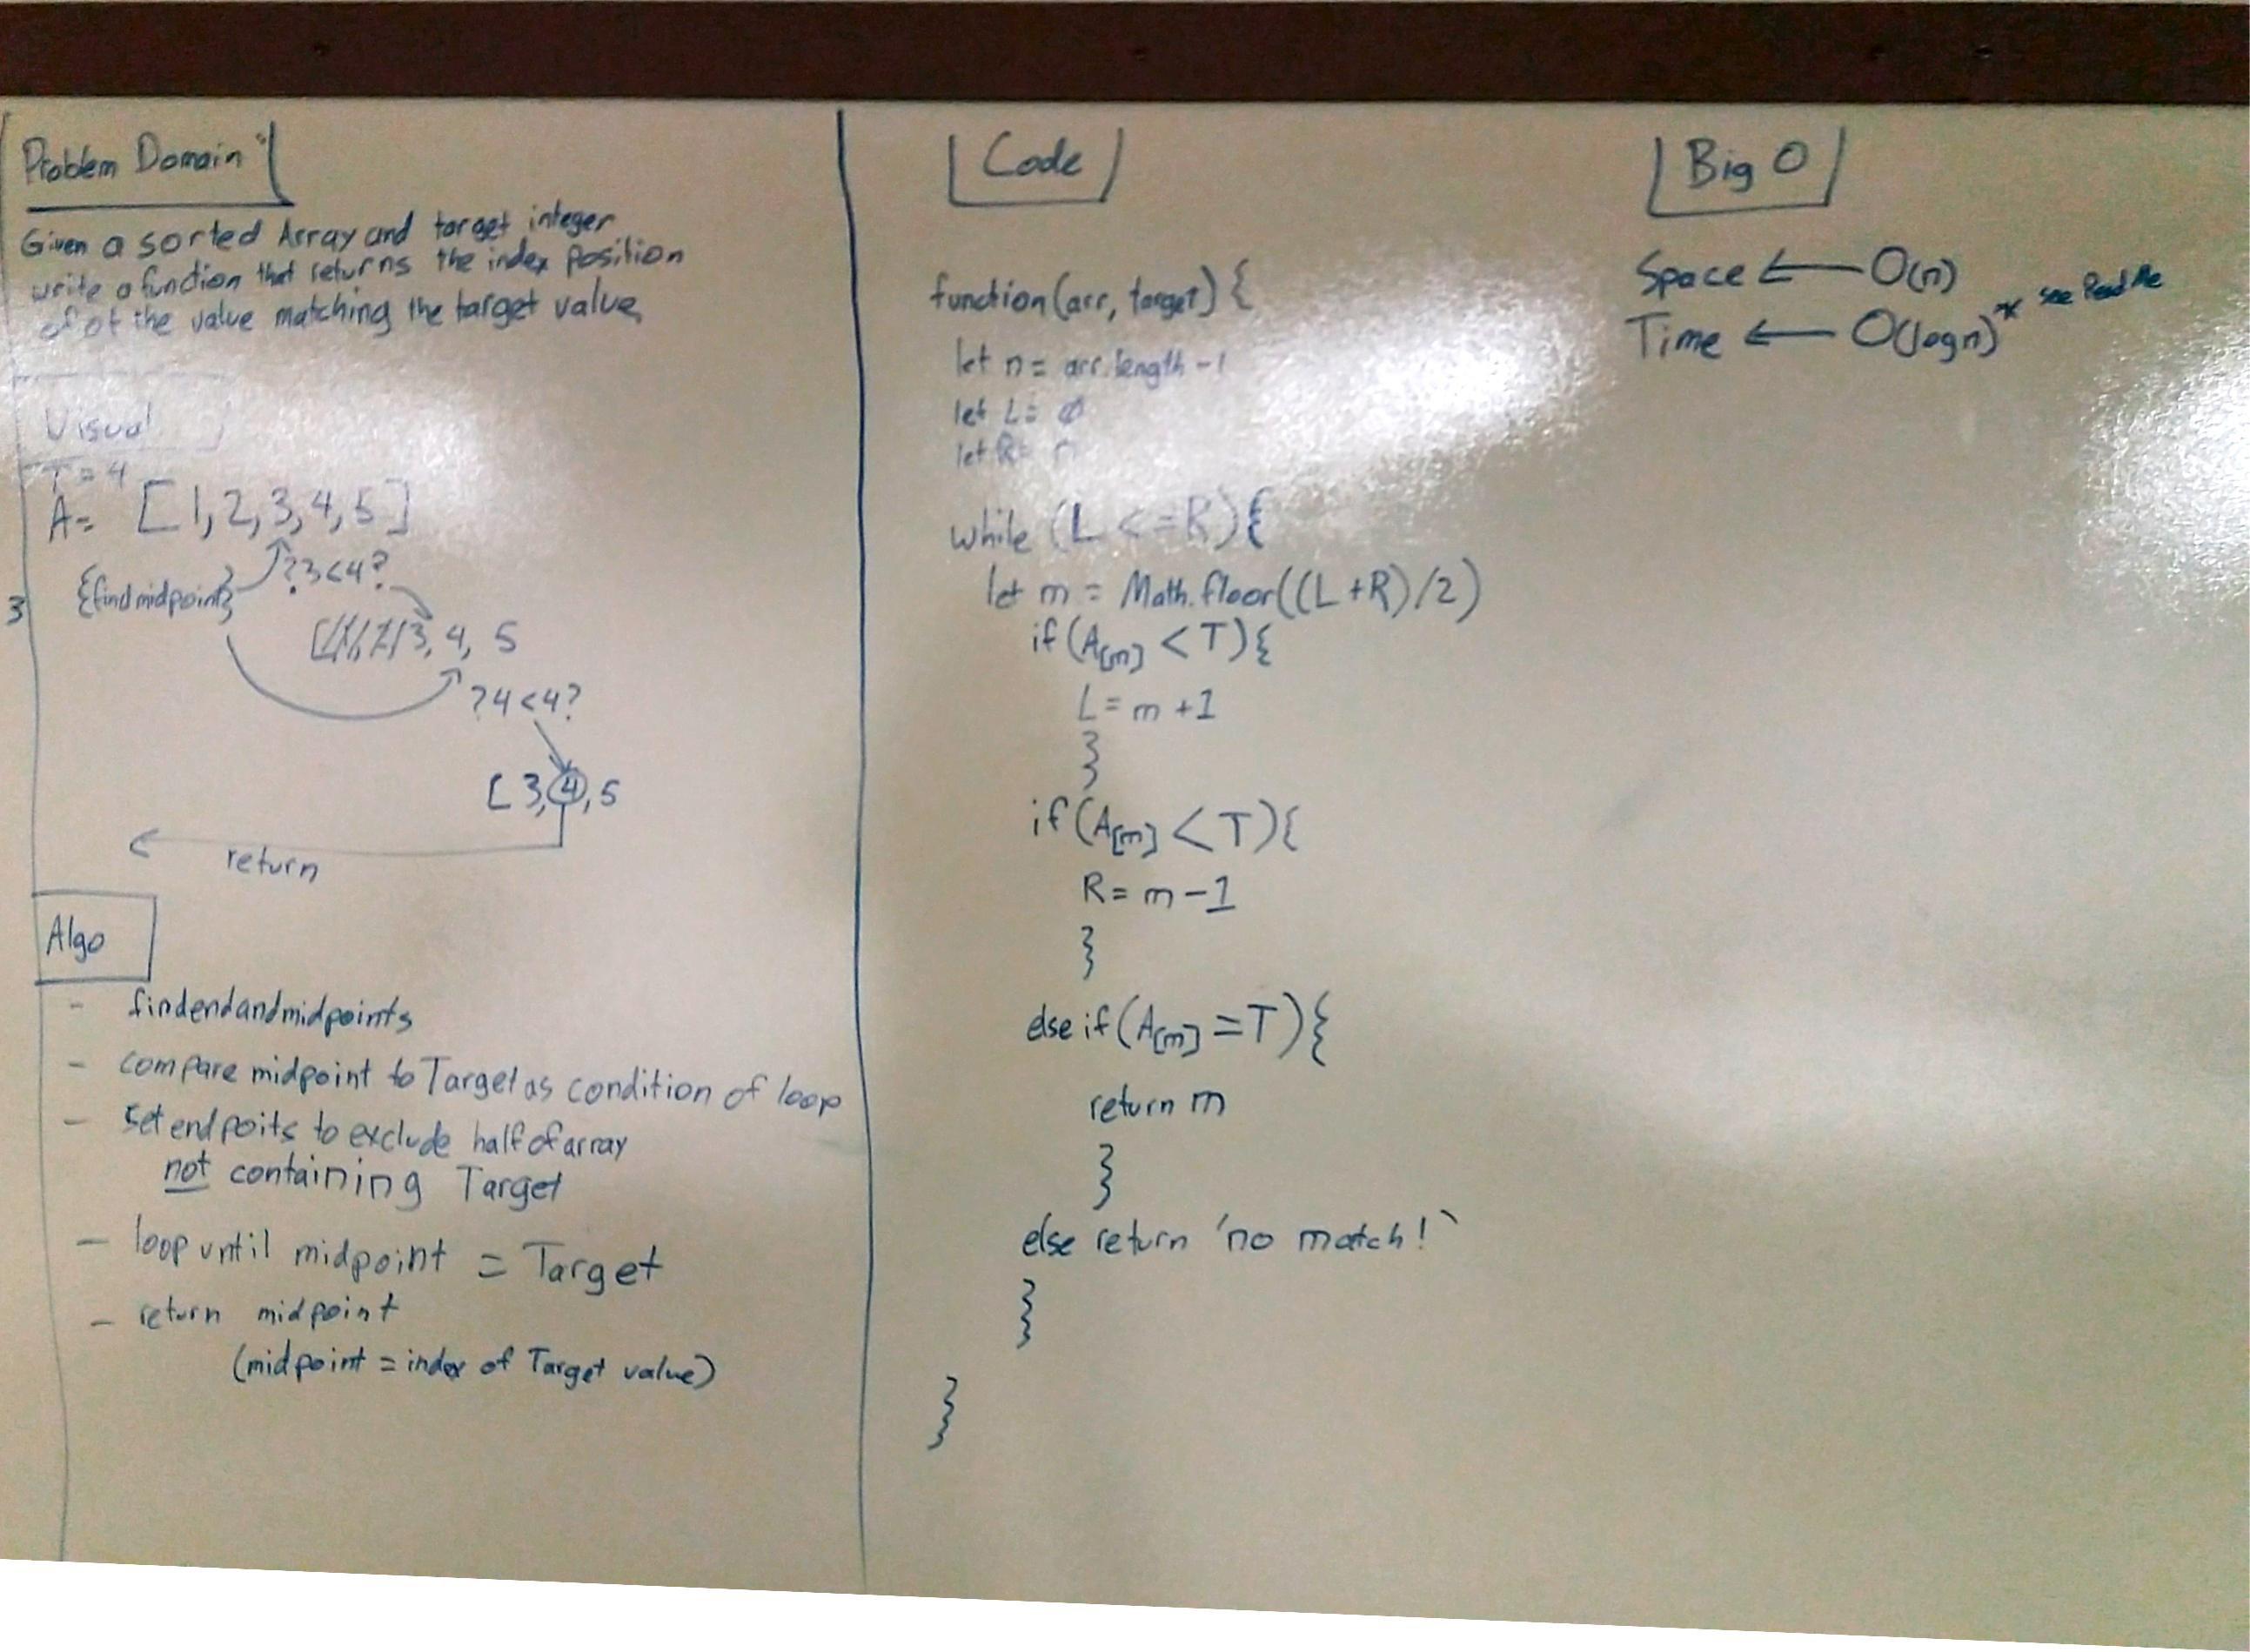 Problem Domain
Given a sorted Array and target integer
write a function that returns the index position
of of the value matching the target value,
Visual
T = 4
A= [1, 2, 3, 4, 5]
{find midpoint}
?3<4?
3
3, 4, 5
?4<4?
[ 3, 4, 5
return
Algo
- find end and midpoints
- compare midpoint to Target as condition of loop
- set end poits to exclude half of array
not containing Target
- loop until midpoint = Target
- return midpoint
(midpoint = index of Target value)
Code
function(arr, target) {
let n = arr.length - 1
let L = 0
let R = n
while (L <= R){
let m = Math.floor((L+R)/2)
if (A[m] < T){
L = m + 1
}
if (A[m] < T){
R = m - 1
}
else if (A[m] = T){
return m
}
else return 'no match!`
}
}
Big O
Space ← O(n)
Time ← O(log n)* see ReadMe